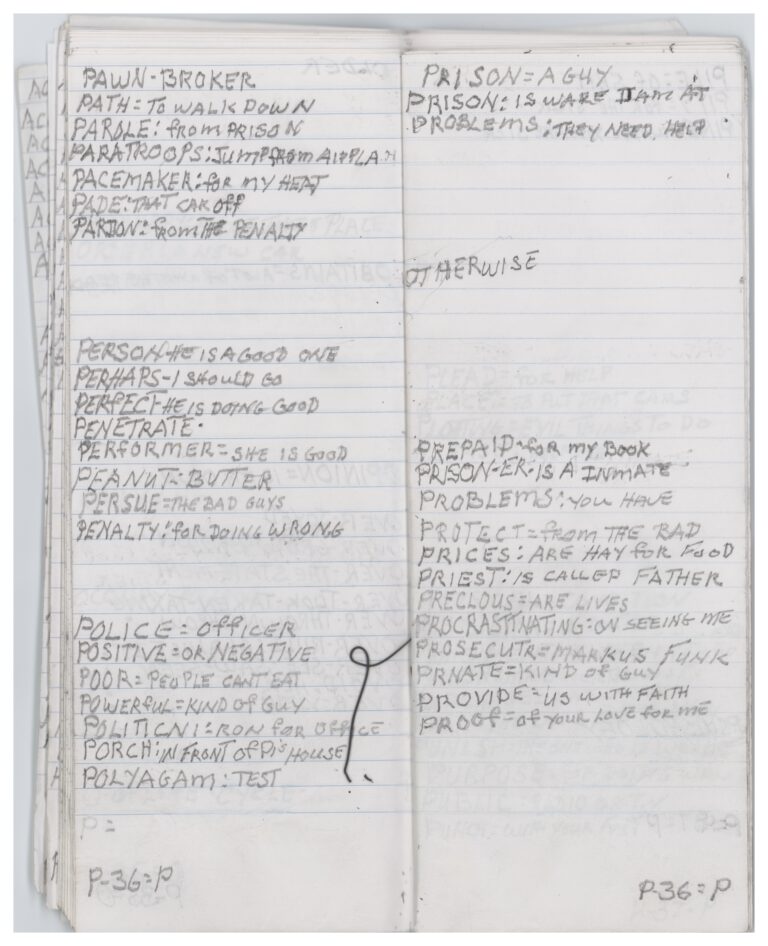 PAWN-BROKER
PATH=TO WALK DOWN
PAROLE: from PRISON
PARATROOPS: JUMP from AIRPLAN
PACEMAKER: for MY HEAT
PADE: THAT CAR Off
PARDON: from THE PENALTY
PERSON-HE IS A GOOD ONE
PERHAPS-I SHOULD GO
PERFECT-HE IS DOING GOOD
PENETRATE-
PERFORMER=SHE IS GOOD
PEANUT-BUTTER
PERSUE=THE BAD GUYS
PENALTY: for DOING WRONG
POLICE=OffICER
POSITIVE=OR NEGATIVE
POOR=PEOPLE CANT EAT
POWERfUL=KIND of GUY
POLITICNI: RON for OffICE
PORCH: IN FRONT of PI'S HOUSE
POLYAGAM: TEST
P=
P-36=P
PRISON=A GUY
PRISON: IS WARE I am AT
PROBLEMS: THEY NEED HELP
OTHERWISE
PREPAID-for MY BOOK
PRISON-ER-IS A INMATE
PROBLEMS: YOU HAVE
PROTECT=from THE BAD
PRICES: ARE HAY for FOOD
PRIEST: IS CALLED FATHER
PRECLOUS=ARE LIVES
PROCRASTINATING: ON SEEING ME
PROSECUTR=MARKUS FUNK
PRNATE=KIND of GUY
PROVIDE=US WITH FAITH
PROOf=of YOUR LOVE for ME
P-36=P